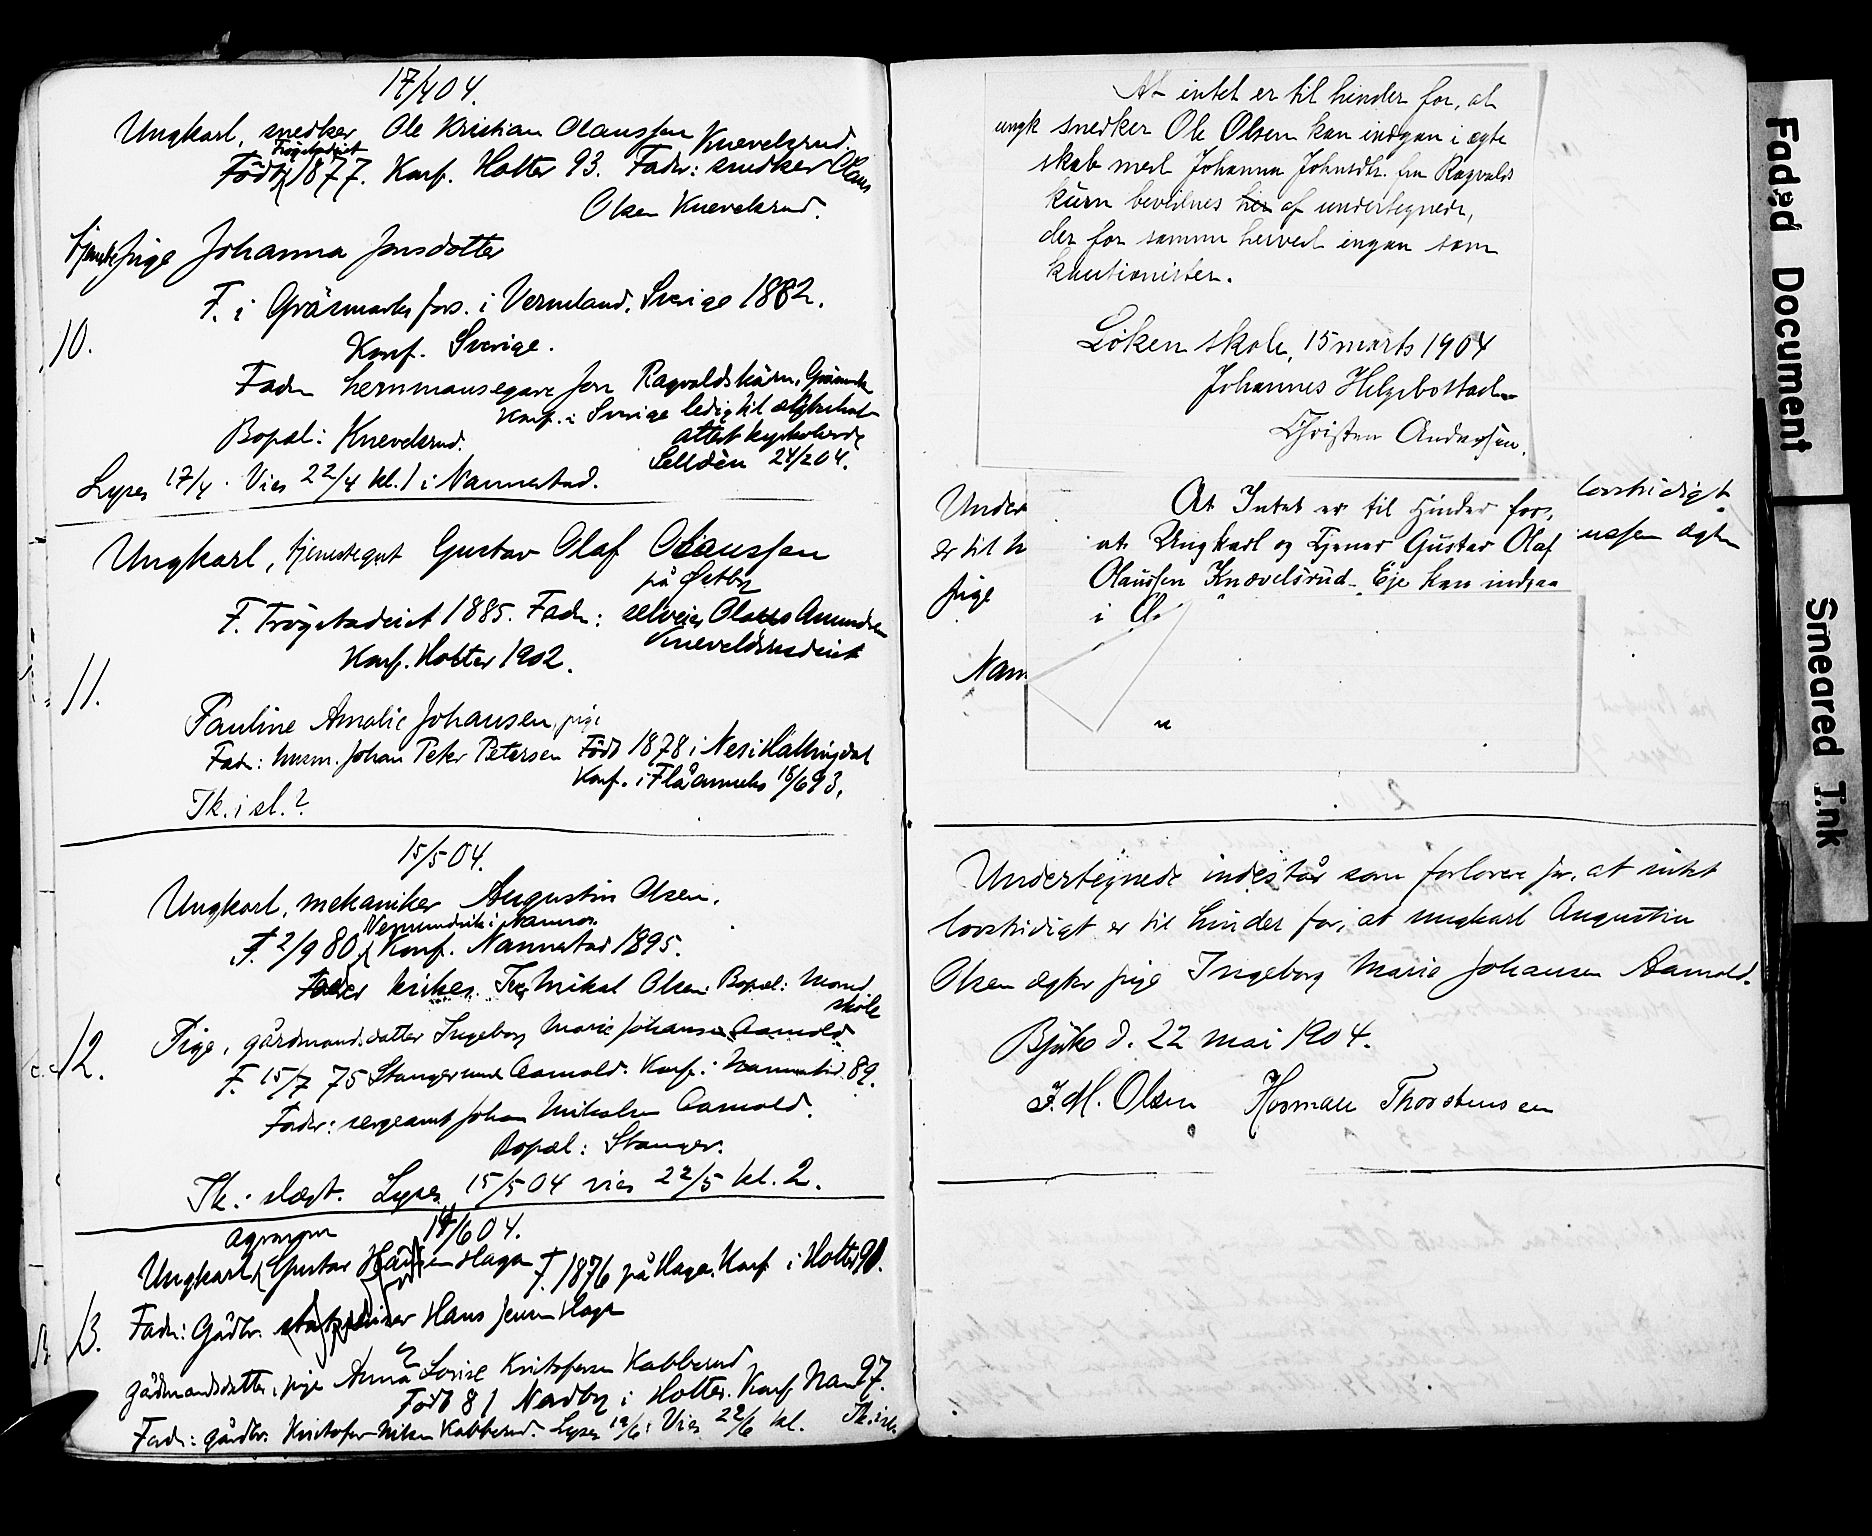 17/4 04.
Ungkarl, snedker Ole Kristian Olaussen Knevelsrud.
Trøgstadeiet
Født 1877. Konf. Holter 93. Fader: snedker Olaus
Olsen Knevelsrud.
tjenestepige Johanna Jonsdotter
F. i Gräsmarks fors. i Vermland, Sverige 1882.
10.
Konf. Sverige.
Fader hemmansegare Jon Ragvaldskärn, Gräsmark
Konf. i Sverige ledig til ægteskab
attest kyrkoherde
Bopæl: Knevelsrud.
Selldén 24/2 04.
Lyses 17/4. Vies 22/4 kl. 1 i Nannestad.
Ungkarl, tjenestegut Gustav Olaf Olaussen
på Østby
F. Trøgstadeiet 1885. Fader: selveier Olaus Amundsen
Knevelsrudeiet
Konf. Holter 1902.
11.
Pauline Amalie Johansen, pige
Fader: husm. Johan Peter Petersen Født 1878 i Nes i Hallingdal
Konf. i Flå anneks 18/6 93.
Sk. i sl.?
15/5 04.
Ungkarl, mekaniker Augustin Olsen.
i Nannes.
F. 2/9 80, Konf. Nannestad 1895.
Fader kirkes. Mikal Olsen. Bopæl: Moand
skole
12.
Pige, gårdmandsdatter Ingeborg Marie Johansen Aamold
F. 15/7 75 Stanger under Aamold. Konf. i Nannestad 89.
Fader: sergeant Johan Mikalsen Aamold.
Bopæl: Stanger.
Sk.: slægt. Lyses 15/5 04 vies 22/5 kl. 2.
Agronom 19/6 04.
Ungkarl Gustav Hansen Haga F. 1876 på Haga. Konf. i Holter 90.
13.
Fader: Gårdbr. Hans Jensen Haga
gårdmandsdatter, pige Anna Lovise Kristofersen Kabberud
Født 81 Nadby i Holter. Konf. Nan 97.
Fader: gårdbr. Kristofer Nilsen Kabberud. Lyses 19/6. Vies 22/6 kl. Sk. i sl.
At intet er til hinder for, at
ungk snedker Ole Olsen kan indgaa i ægte
skab med Johanna Johnsdtr. fra Ragvalds
kärn bevidnes her af undertegnede,
der for samme herved ingaa som
kautionister.
Löken skole, 15 marts 1904
Johannes Helgebostad
Christen Andersen.
Under
er til h
pige
Nam
At Intet er til Hinder for,
at Ungkarl og Tjener Gustav Olaf
Olaussen Knævelsrud Eje kan indgaa
i Æ
lovstridigt
ussen ægter
Undertegnede indestår som forlovere for, at intet
lovstridigt er til hinder for, at ungkarl Augustin
Olsen ægter pige Ingeborg Marie Johansen Aamold.
Bjerke d. 22 mai 1904.
J. M. Olsen Herman Thorstensen
Faded Document
Smeared Ink